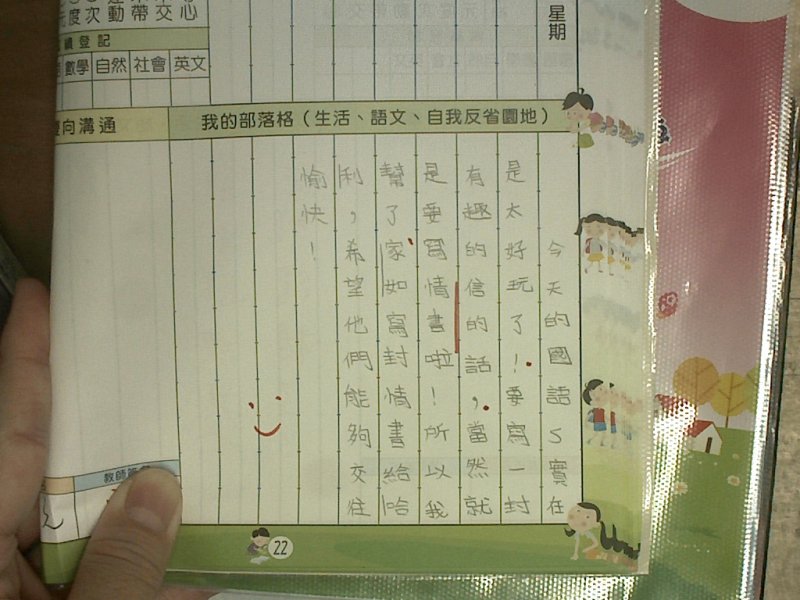 度次動帶交心
星期
績登記
數學 自然 社會 英文
雙向溝通
我的部落格（生活、語文、自我反省園地）
今天的國語S實在
是太好玩了！要寫一封
有趣的信的話，當然就
是要寫情書啦！所以我
幫了家如寫封情書給哈
利，希望他們能夠交往
愉快！
教師
22